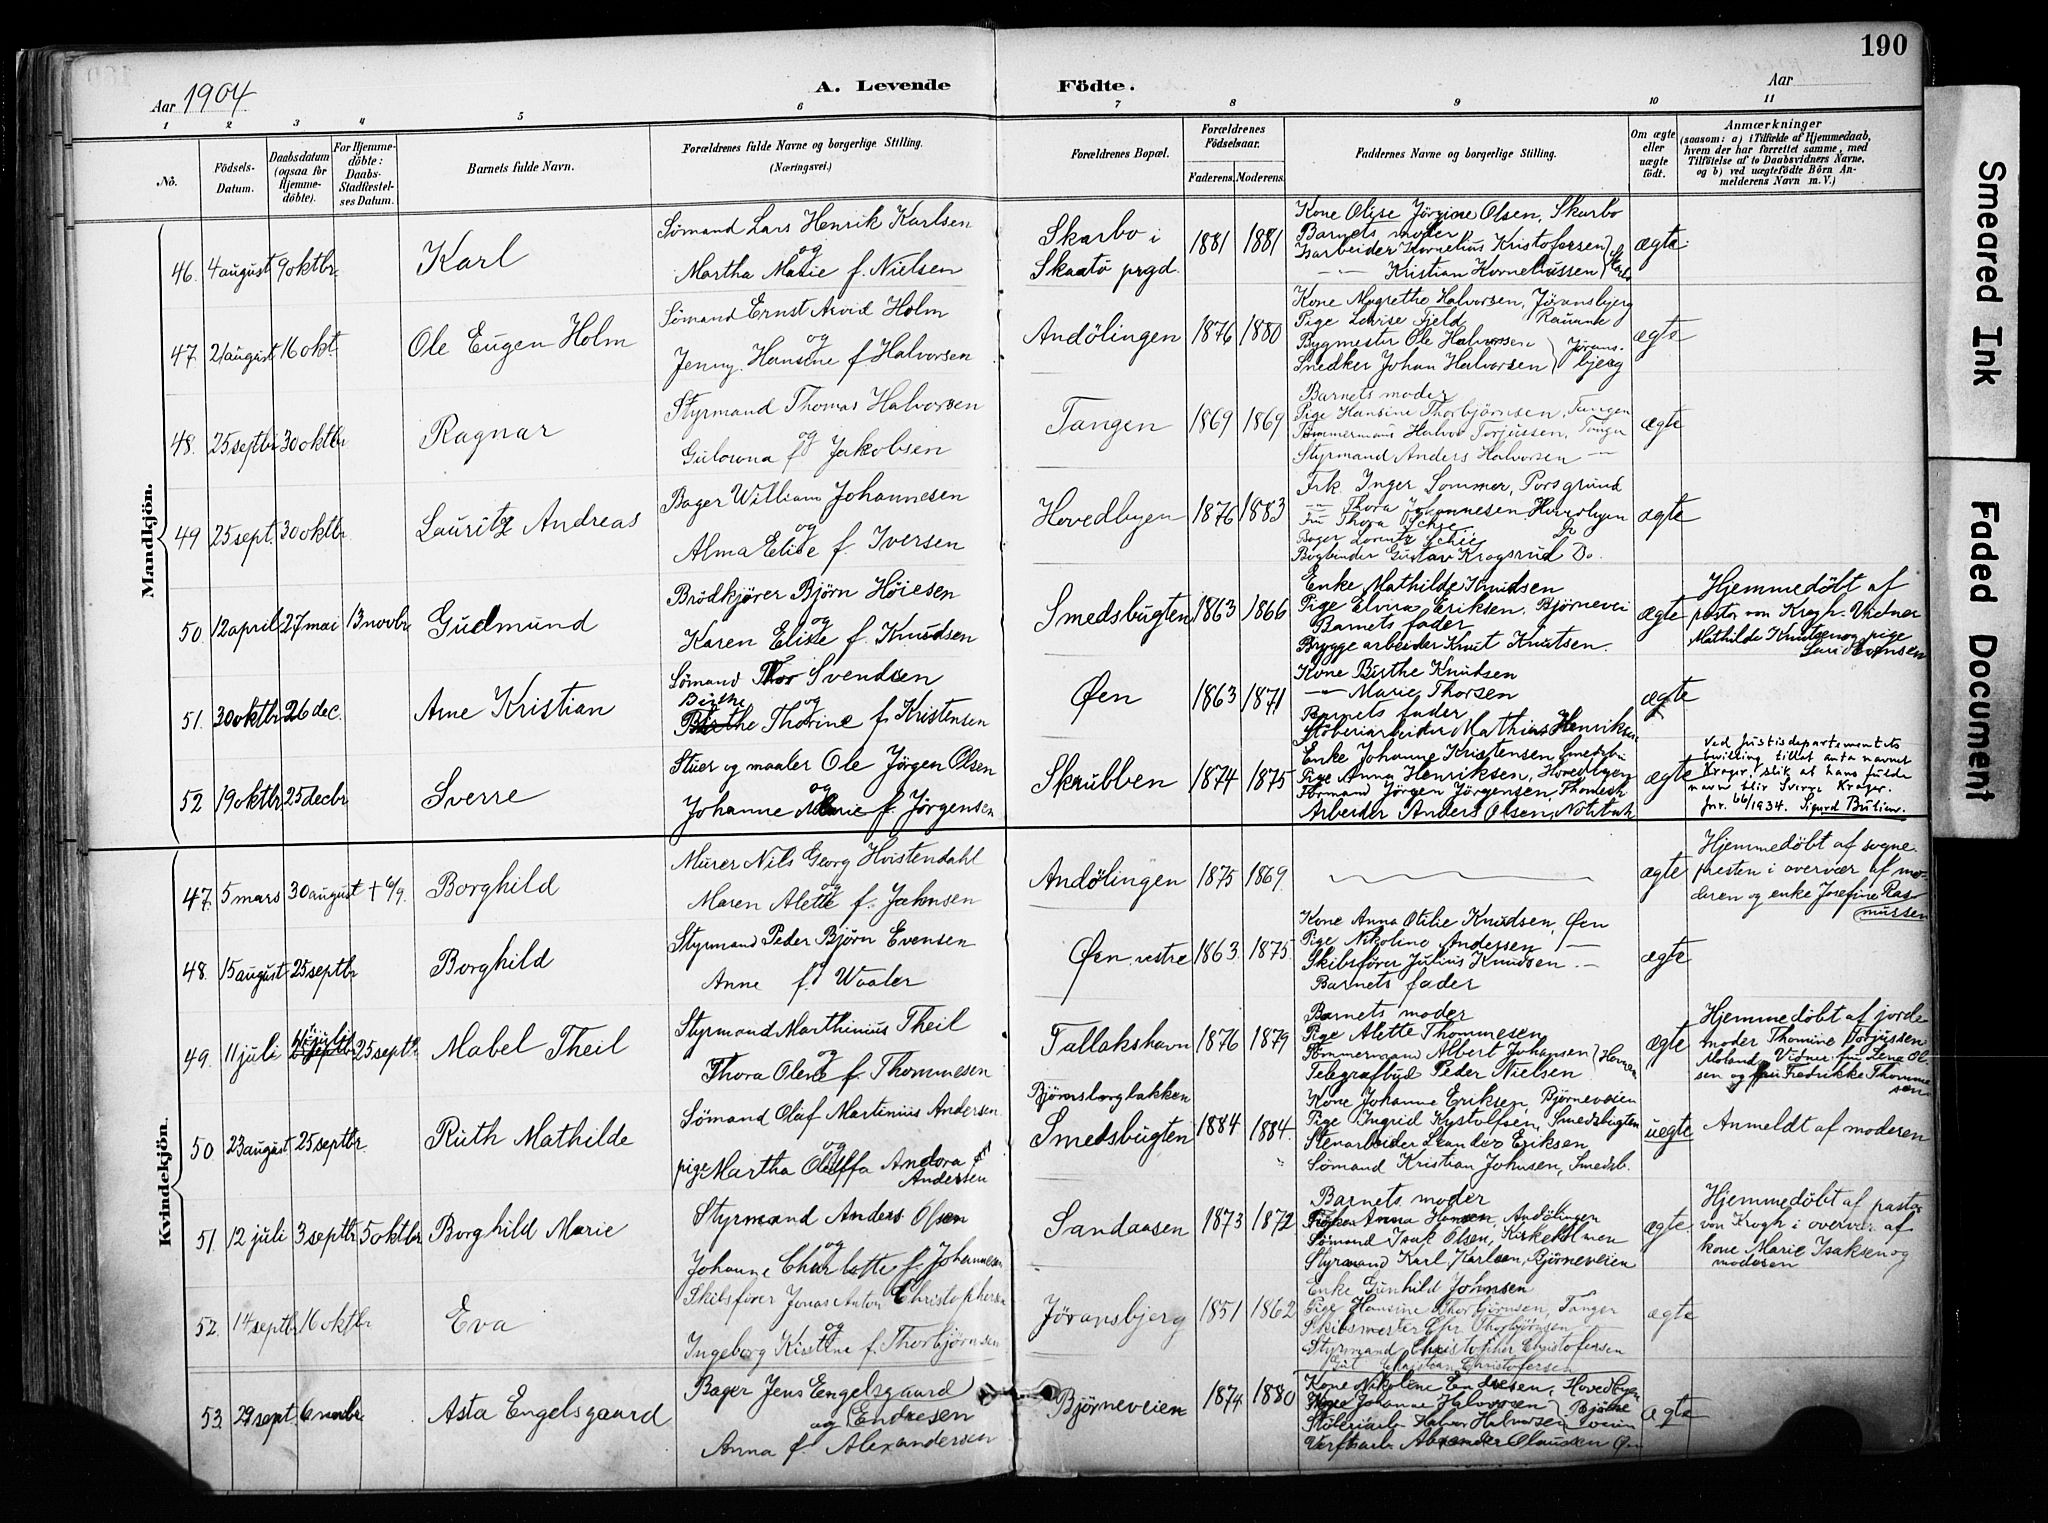 190
Aar 1904
A. Levende Födte.
Aar
1 2 3 4 5 6 7 8 9 10 11
No.
Födsels-Datum.
Daabsdatum (ogsaa for Hjemme-döbte).
For Hjemme-döbte: Daabs-Stadfæstel-ses Datum.
Barnets fulde Navn.
Forældrenes fulde Navne og borgerlige Stilling. (Næringsvei.)
Forældrenes Bopæl.
Forældrenes Födselsaar.
Faderens. Moderens.
Faddernes Navne og borgerlige Stilling.
Om ægte eller uægte födt.
Anmærkninger
(saasom: a) i Tilfælde af Hjemmedaab, hvem der har forrettet samme, med Tilföielse af to Daabsvidners Navne, og b) ved uægtefödte Börn Anmelderens Navn m. V.)
Mandkjön.
46. 4 august 9 oktbr. Karl
Sømand Lars Henrik Karlsen
og
Martha Marie f. Nielsen
Skarbo i
Skaatø prgd.
1881 1881
Kone Olgse Jörgine Olsen, Skarbo
Barnets moder
Isarbeider Kornelius Kristofersen
Kristian Korneliussen
ægte
47. 21 august 16 okt. Ole Eugen Holm
Sømand Ernst Arvid Holm
og
Jenny Hansine f. Halvorsen
Andölingen 1876 1880
Kone Magrethe Halvorsen, Jøransbjerg
Pige Lovise Fjeld
Bygmester Ole Halvorsen
Snedker Johan Halvorsen
Jørans-
bjerg
ægte
48. 25 septbr 30 oktbr Ragnar
Styrmand Thomas Halvorsen
og
Gulovna f. Jakobsen
Tangen 1869 1869
Barnets moder
Pige Hansine Thorbjörnsen, Tangen
Tømmermand Halvor Torjussen, Tangen
Styrmand Anders Halvorsen —
ægte
49 25 sept. 30 oktbr. Lauritz Andreas
Bager William Johannesen
og
Alma Elise f. Iversen
Hovedbyen 1876 1883
Frk. Inger Sommer, Porsgrund
— Thora Johannesen Hovedbyen
Fru Thora Schie
Bager Lorentz Schie Do
Bogbinder Gustav Kragsrud Do.
ægte
50. 12 april 27 mai 13 novbr. Gudmund
Brödkjører Björn Høiesen
og
Karen Elise f. Knudsen
Smedsbugten 1863 1866
Enke Mathilde Knudsen
Pige Elvira Eriksen, Björnevei
Barnets fader
Bryggearbeider Knut Knutsen.
ægte
Hjemmedøbt af
pastor von Krogh. Vidner
Mathilde Knutsen og pige
51. 30 oktbr 26 dec. Arne Kristian
Sømand Thor Svendsen
Birthe og
Birthe Thorine f. Kristensen
Øen 1863 1871
Kone Birthe Knudsen
— Marie Thorsen
Barnets fader
Støberiarbeider Mathias Henriksen
ægte
52 19 oktbr. 25 decbr Sverre
Stuer og maaler Ole Jørgen Olsen
og
Johanne Marie f. Jörgensen
Skrubben 1874 1875
Enke Johanne Kristensen Smedsbu
Pige Anna Henriksen, Hovedbyen
Formand Jörgen Jörgensen, Thomesh
Arbeider Anders Olsen,
ægte
Ved Justisdepartementets
bevilling tillat anta navnet
Kragør, slik at hans fulde
navn blir Sverre Kragør.
Jnr. 66/1934. Sigurd
Kvindekjön.
47. 5 mars 30 august + 6/9. Borghild
Murer Nils Georg Hvistendahl
og
Maren Alette f. Jahnsen
Andölingen 1875 1869.
ægte
Hjemmedøbt af sogne-
presten i overvær af mo-
deren og enke Josefine Ras-
mussen
48. 15 august 25 septbr. Borghild
Styrmand Peder Björn Evensen
og
Anne f. Waaler
Øen vestre 1863. 1875.
Kone Anna Otilie Knudsen, Øen
Pige Nikoline Andersen —
Skibsfører Julius Knudsen —
Barnets fader
ægte
49. 11 juli 11 juli 25 septbr 25 septb Mabel Theil
Styrmand Marthinius Theil
og
Thora Olene f. Thommesen
Tallakshavn 1876 1879
Barnets moder
Pige Alette Thommesen
Tømmermand Albert Johansen
Telegrafbud Peder Nielsen
ægte
Hjemmedøbt af jorde-
moder Thomine Torjussen
Moland. Vidner: fru Lena Ol-
sen og fru Fredrikke Thomme
sen
50 23 august 25 septbr. Ruth Mathilde
Sömand Olaf Martinius Andersen
og
pige Martha Oluffa Andora
Andersen
Björnsborgbakken
Smedsbugten
1884 1884.
Kone Johanne Eriksen, Björneveien
Pige Ingrid Kystolfsen, Smedsbugten
Stenarbeider Leander Eriksen
Sömand Kristian Johnsen, Smedsb.
uegte
Anmeldt af moderen
51. 12 juli 3 septbr 5 oktbr Borghild Marie
Styrmand Anders Olsen
og
Johanne Charlotte f. Johannesen
Sandaasen 1873 1872
Barnets moder
Frøken Anna Hansen, Andölingen
Sömand Isak Olsen, Kirkeholmen
Styrmand Karl Karlsen, Björneveien
ægte
Hjemmedøbt af pastor
von Krogh i overvær af
kone Marie Isaksen og
moderen
52. 14 septbr 16 oktbr Eva
Skibsfører Jonas Anton Christophersen
og
Ingeborg Kistine f. Thorbjörnsen
Jöransbjerg 1851 1862
Enke Gunhild Johnsen
Pige Hansine Thorbjörnsen, Tangen
Skibsmester Thorbjörnsen
Styrmand Christopher Christofersen
Gut Christian Christofersen
ægte
53. 29 sept. 6 novbr. Asta Engelsgaard
Bager Jens Engelsgaard
og Endresen
Anna f. Alexandersen
Björneveien 1874 1880
Kone Nikoline Endresen, Hovedbyen
Kone Johanne Halvorsen
Støberiarb. Halvor Halvorsen
Verftsarb. Alexander Olaussen Øen
ægte
Smeared Ink
Faded Document